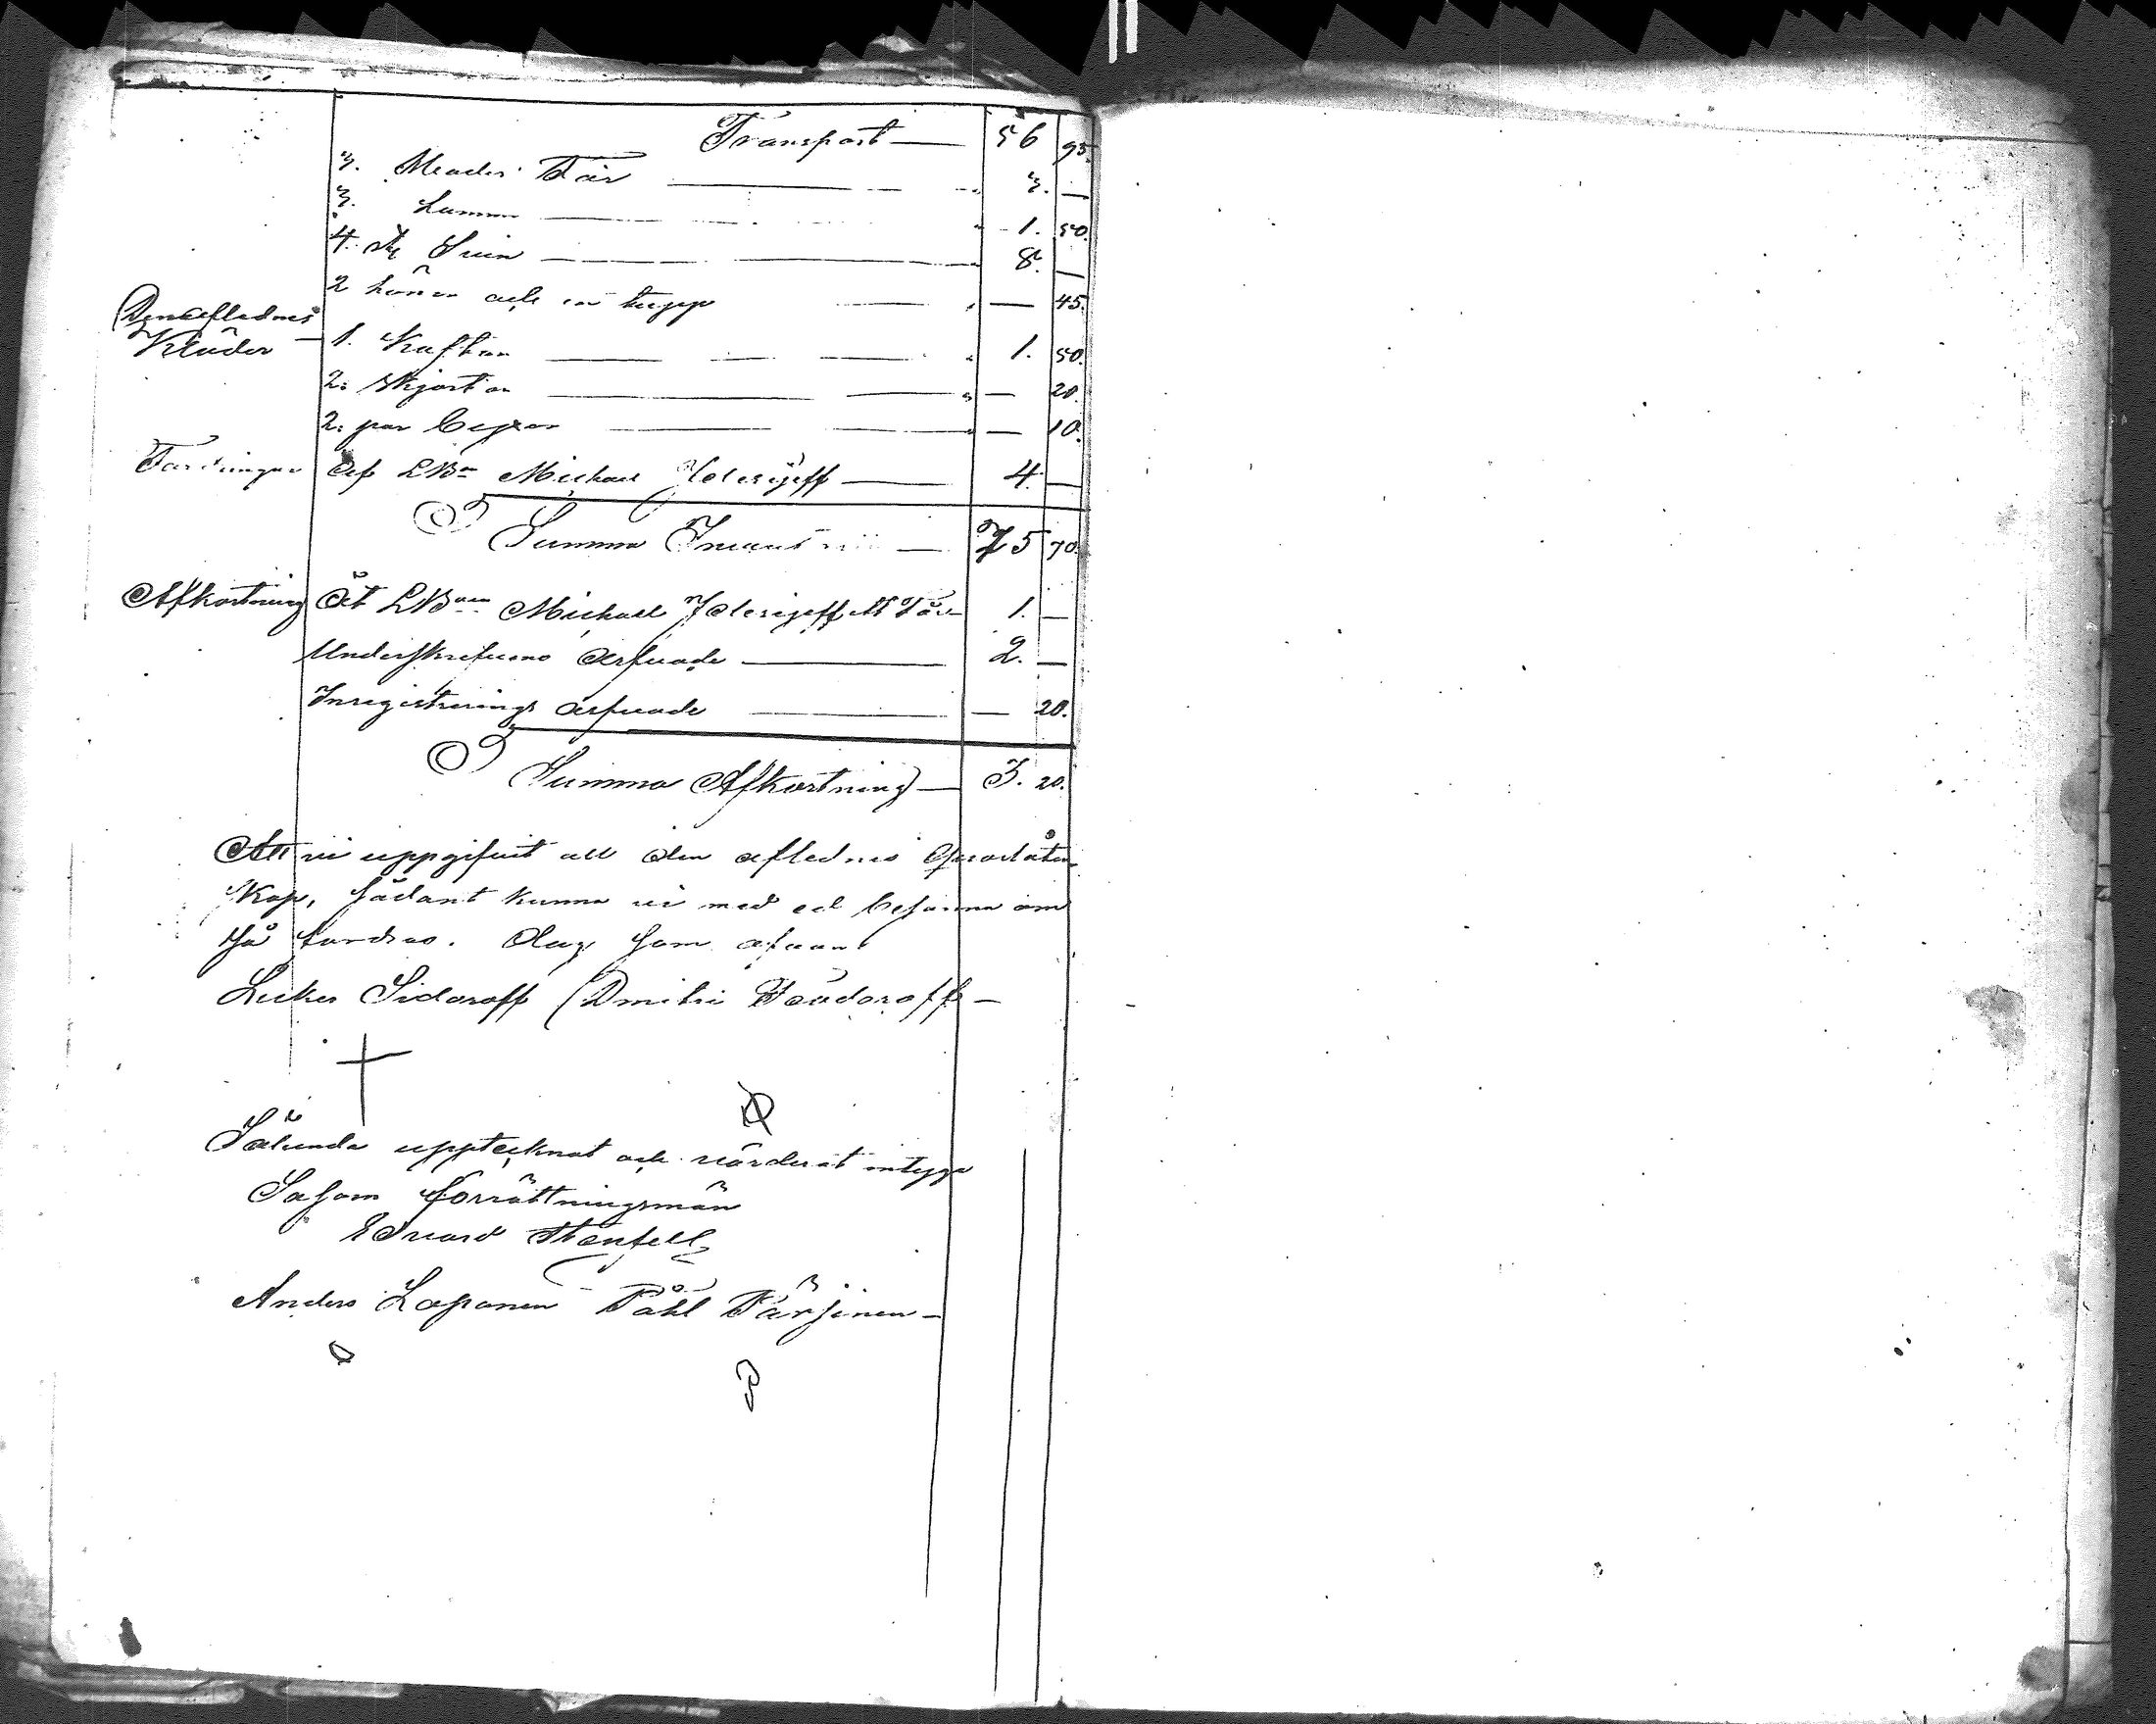 Transport — 56 95.
3. Moder Får — 3. —
3. Lamm — 1. 50.
4. st Svin — 8. —
2 hönor och en tupp — — 45.
Den aflednes
Kläder 1. Kaftan — 1. 50.
2. skjortor — — 20.
2. par byxor — — 10.
Fordringar Af LBn Michael — 4. —
Summa — 75 70.
Afkortning Åt LBon Michael ett Får 1. —
Underskrefvano Arfvode — 2. —
Inregistrerings arfvode — — 20.
Summa Afkortning — 3. 20.
Att vi uppgifvit all den aflednes
skap, sådant kunna vi med ed om
så fordras. som ofvant
Luker Sidoroff Dmitri Feodoroff —
Sålunda upptecknat och värderat intyga
Såsom förrättningsmän
Edvard Stenfell
Anders Laponen Påhl Pärsinen —